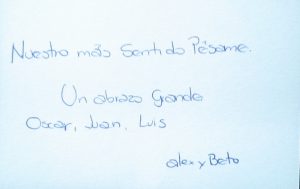 Nuestro más Sentido Pésame.
Un abrazo Grande
Oscar, Juan, Luis
alex y Beto